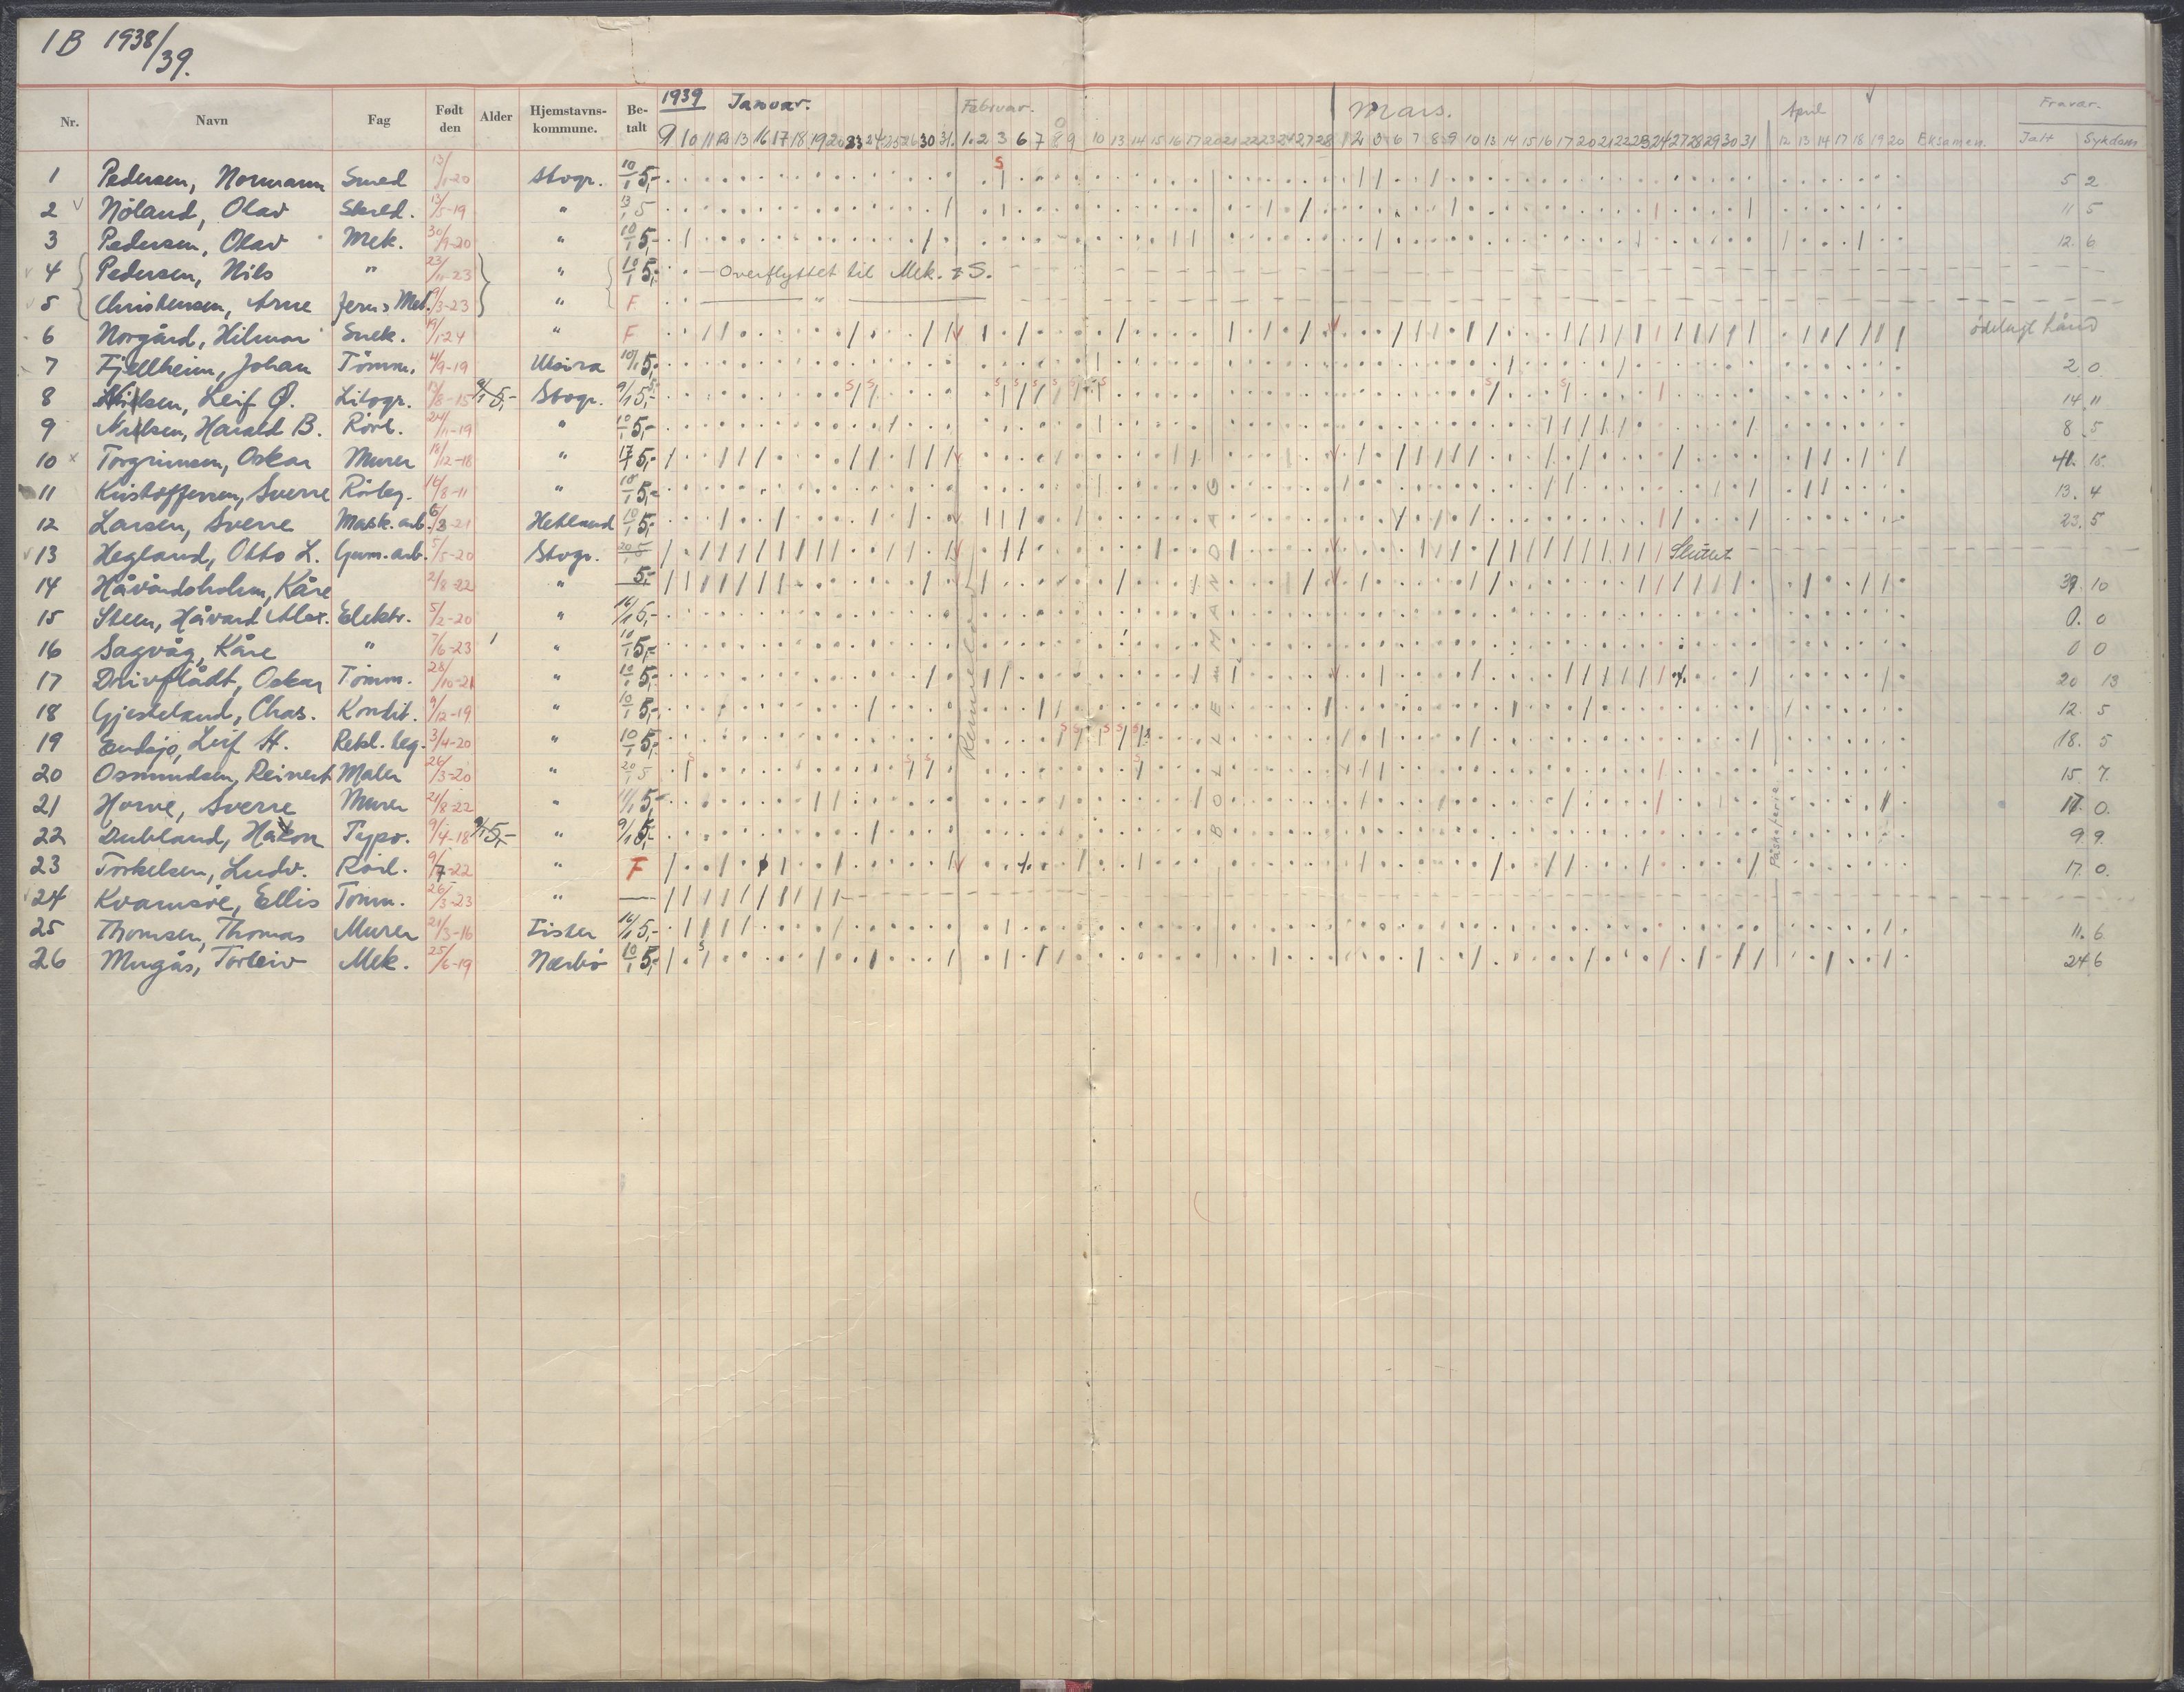 1B 1938/39.
Nr. Navn Fag Født den Alder Hjemstavns-kommune. Be-talt 1939 Januar. Februar. Mars. April Fravær.
9 10 11 12 13 16 17 18 19 20 23 24 25 26 30 31. 1. 2 3 6 7 8 9 10 13 14 15 16 17 20 21 22 23 24 27 28 1 2 3 6 7 8 9 10 13 14 15 16 17 20 21 22 23 24 27 28 29 30 31 12 13 14 17 18 19 20 Eksamen. Ialt Sykdom
1 Pedersen, Normann Smed 13/1-20 Stvgr. 10/1 5,- S 5 2
2 Nöland, Olav Skred. 12/5-19 " 13/1 5 11 5
3 Pedersen, Olav Mek. 30/9-20 " 10/1 5,- 12. 6
4 Pedersen, Nils " 23/11-23 " 10/1 5,- Overflyttet til Mek. S.
5 Christensen, Arne 9/3-23 " F "
6 Norgård, Hilmar Snek. 19/1-24 " F ödelagt hånd
7 Fjellheim, Johan Tömm. 4/9-19 Utsira 10/1 5,- 2 0
8 Nilsen, Leif Ø. Litogr. 13/8-15 9/1 5,- Stvgr. 9/1 5,- S S S S S S S S S S 14 11
9 Nielsen, Harald B. Rörl. 24/11-19 " 10/1 5,- 8. 5
10 x Torgrimsen, Oskar Murer 18/12-18 " 17/1 5,- 41. 15
11 Kristoffersen, Sverre Rörleg. 14/8-11 " 10/1 5,- 13. 4
12 Larsen, Sverre Mask. arb. 6/3-21 Hetland 10/1 5,- 23. 5
13 Hegland, Otto L. Gum. arb. 5/5-20 Stvgr. 20/1 5 Sluttet
14 Håvårdsholm, Kåre 2/8-22 " 5,- 39. 10
15 Steen, Håvard Alex. Elektr. 5/2-20 " 16/1 5,- 0. 0
16 Sagvåg, Kåre " 7/6-23 " 10/1 5,- 0 0
17 Drivflådt, Oskar Tömm. 28/10-21 " 10/1 5,- 20 13
18 Gjesteland, Chas. Kondit. 9/12-19 " 10/1 5,- 12. 5
19 Endsjö, Leif H. Rekl. teg. 3/4-20 " 10/1 5,- S S S S S 18. 5
20 Osmundsen, Reinert Maler 26/3-20 " 20/1 5 S S S S 15 7.
21 Horve, Sverre Murer 21/8-22 " 11/1 5,- 17. 0.
22 Dubland, Håkon Typo. 9/4-18 9/1 5,- " 9/1 5,- 9 9.
23 Torkelsen, Ludv. Rörl. 9/7-22 " F 17. 0.
24 Kvamsöe, Ellis Tömm. 26/3-23 "
25 Thomsen, Thomas Murer 21/3-16 Fister 16/1 5,- 11. 6
26 Mugås, Torleiv Mek. 25/6-19 Nærbö 10/1 5,- S 24 6
BOLLEMANDAG
Påskeferie